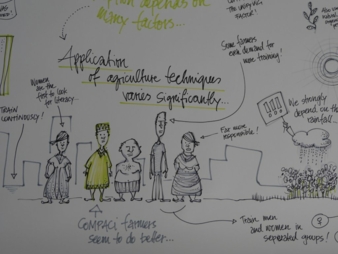 depends on
many factors...
FACTOR!
Application
of agriculture techniques
varies significantly...
Women are
the first to look
for literacy...
TRAIN
CONTINUOUSLY!
Some farmers
even demand for
more training!
We strongly
depend on the
rainfall...
Far more
responsible!
COMPACI farmers
seem to do better...
Train men
and women in
separated groups!